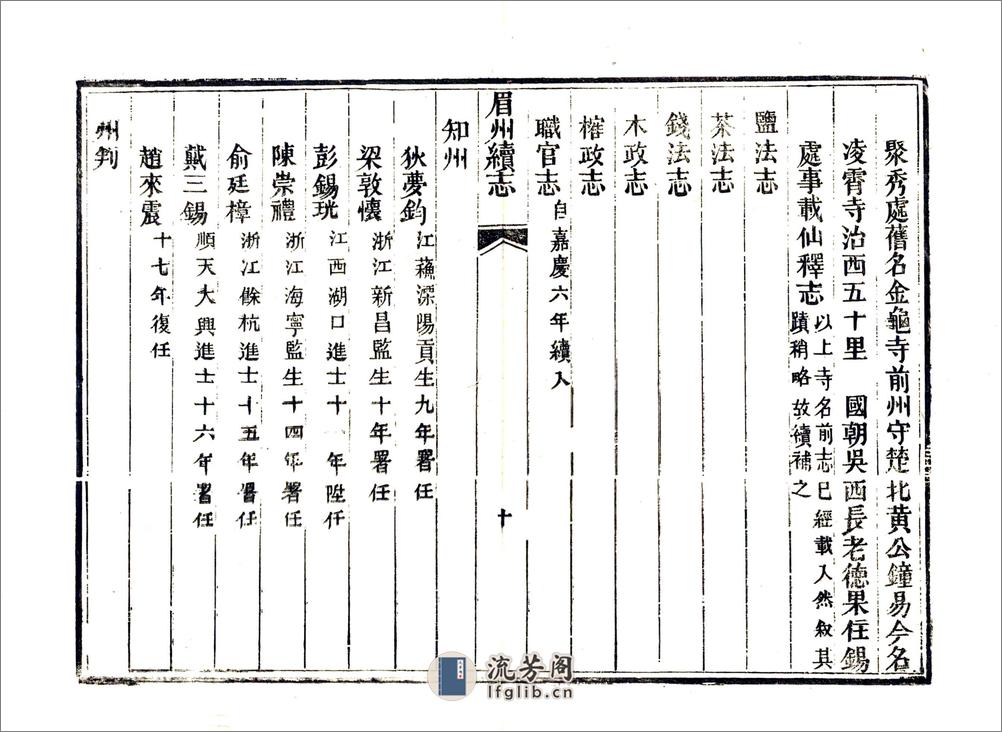 聚秀處舊名金龜寺前州守楚北黃公鐘易今名
凌霄寺治西五十里　國朝吳西長老德果住錫
處事載仙釋志以上寺名前志已經載入然敘其
蹟稍略故續補之
鹽法志
茶法志
錢法志
木政志
榷政志
職官志自嘉慶六年續入
眉州續志
十
知州
狄夢鈞江蘇溧陽貢生九年署任
梁敦懷浙江新昌監生十年署任
彭錫珖江西湖口進士十一年陞任
陳崇禮浙江海寧監生十四年署任
俞廷樟浙江餘杭進士十五年署任
戴三錫順天大興進士十六年署任
趙來震十七年復任
州判
流芳阁
lfglib.cn